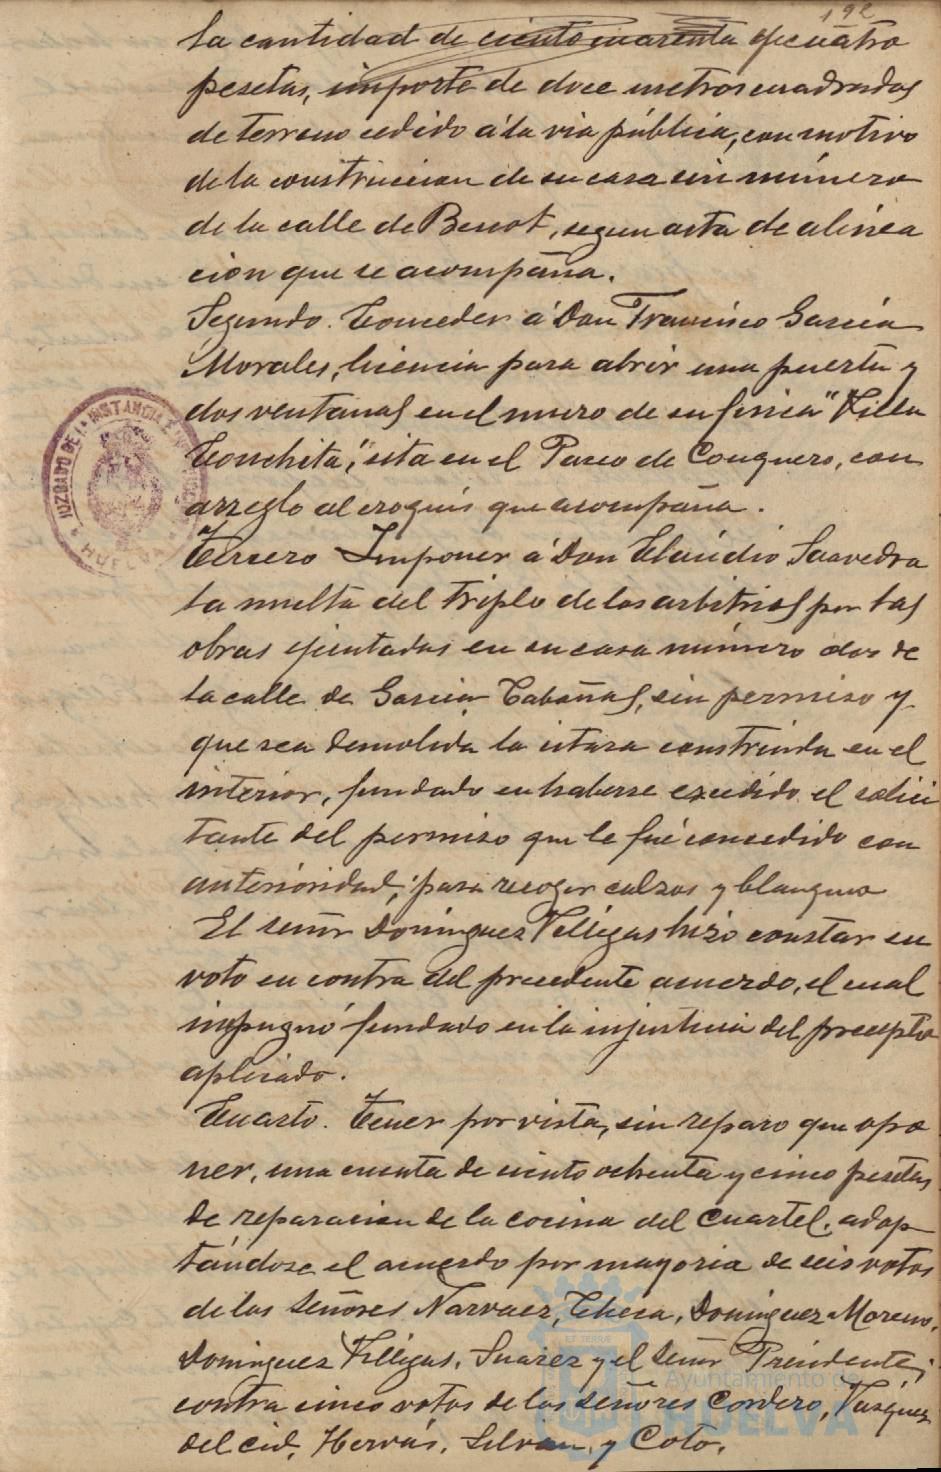 192
la cantidad de ciento cuarenta y cuatro
pesetas, importe de doce metros cuadrados
de terreno cedido á la via pública, con motivo
de la construccion de su casa sin número
de la calle de Benot, segun acta de alinea
cion que se acompaña.
Segundo. Conceder á Don Francisco Garcia
Morales, licencia para abrir una puerta y
dos ventanas en el muro de su finca "Villa
Conchita", sita en el Paseo de Conquero, con
arreglo al croquis que acompaña.
Tercero Imponer á Don Claudio Saavedra
la multa del triplo de los arbitrios por las
obras ejecutadas en su casa número dos de
la calle de Garcia Cabañas, sin permiso y
que sea demolida la citara construida en el
interior, fundado en haberse excedido el solici
tante del permiso que le fué concedido con
anterioridad, para recoger calzos y blanqueo
El señor Dominguez Villegas hizo constar su
voto en contra del precedente acuerdo, el cual
impugnó fundado en la injusticia del precepto
aplicado.
Cuarto. Tener por vista, sin reparo que opo
ner, una cuenta de ciento ochenta y cinco pesetas
de reparacion de la cocina del cuartel, adop
tándose el acuerdo por mayoria de seis votos
de los señores Narvaez, Checa, Dominguez Moreno,
Dominguez Villegas, Suarez y el señor Presidente,
contra cinco votos de los señores Cordero, Vázquez
del cid, Hervás, Silvan, y Coto.
JUZGADO DE 1ª INSTANCIA E
HUELVA
Ayuntamiento de
HUELVA